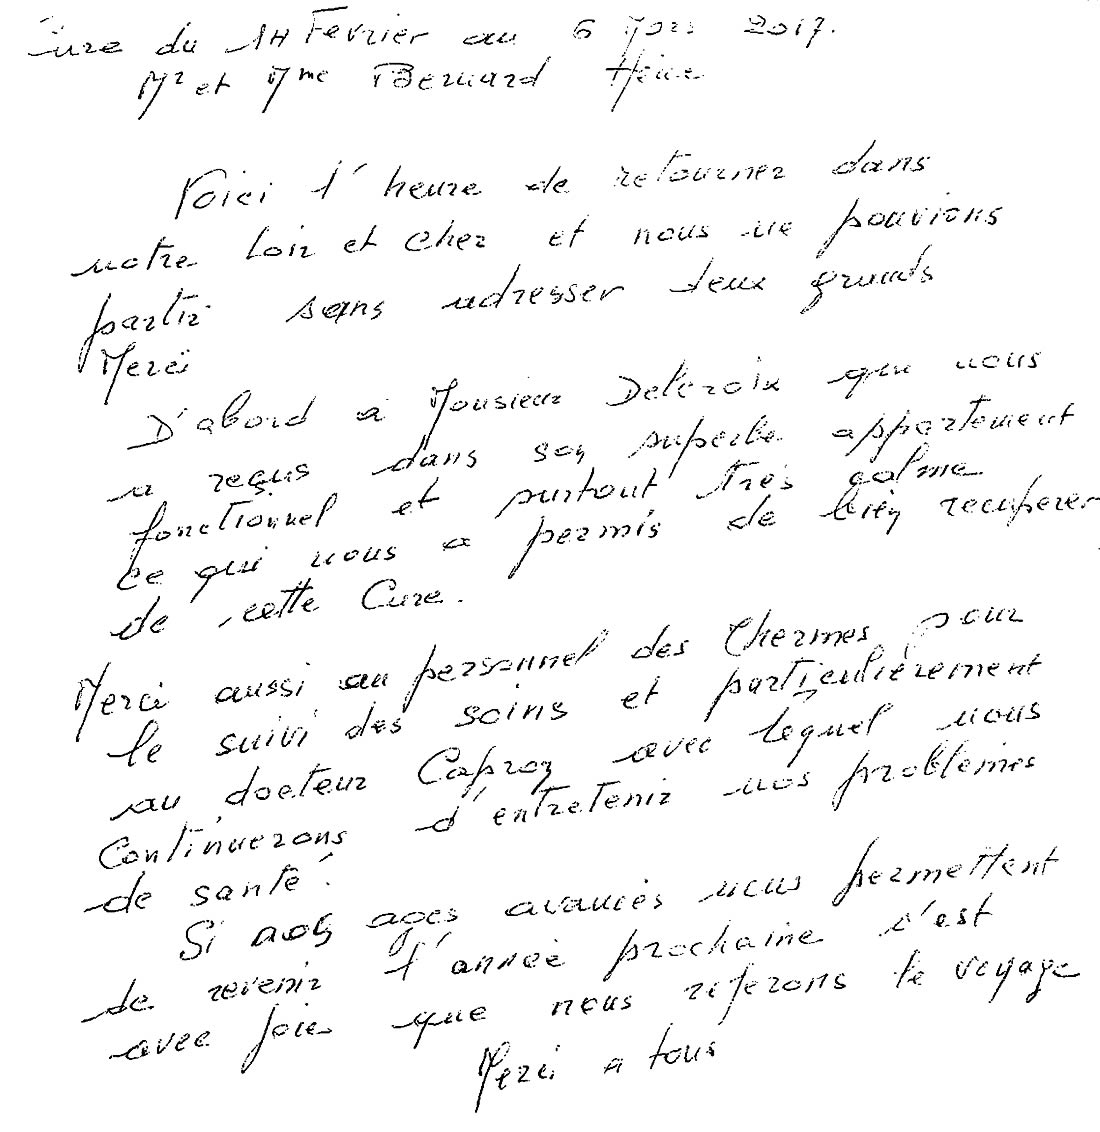 Cure du 14 Fevrier au 6 Mars 2017.
Mr et Mme Bernard
Voici l'heure de retourner dans
notre Loir et Cher et nous ne pouvions
partir sans adresser deux grands
Merci
D'abord a Monsieur Delcroix qui nous
a reçus dans son superbe appartement
fonctionnel et surtout très calme
ce qui nous a permis de bien recuperer
de cette Cure.
Merci aussi au personnel des thermes pour
le suivi des soins et particulièrement
au docteur Capron avec lequel nous
Continuerons d'entretenir nos problèmes
de santé.
Si nos ages avancés nous permettent
de revenir l'année prochaine c'est
avec joie que nous referons le voyage
Merci a tous